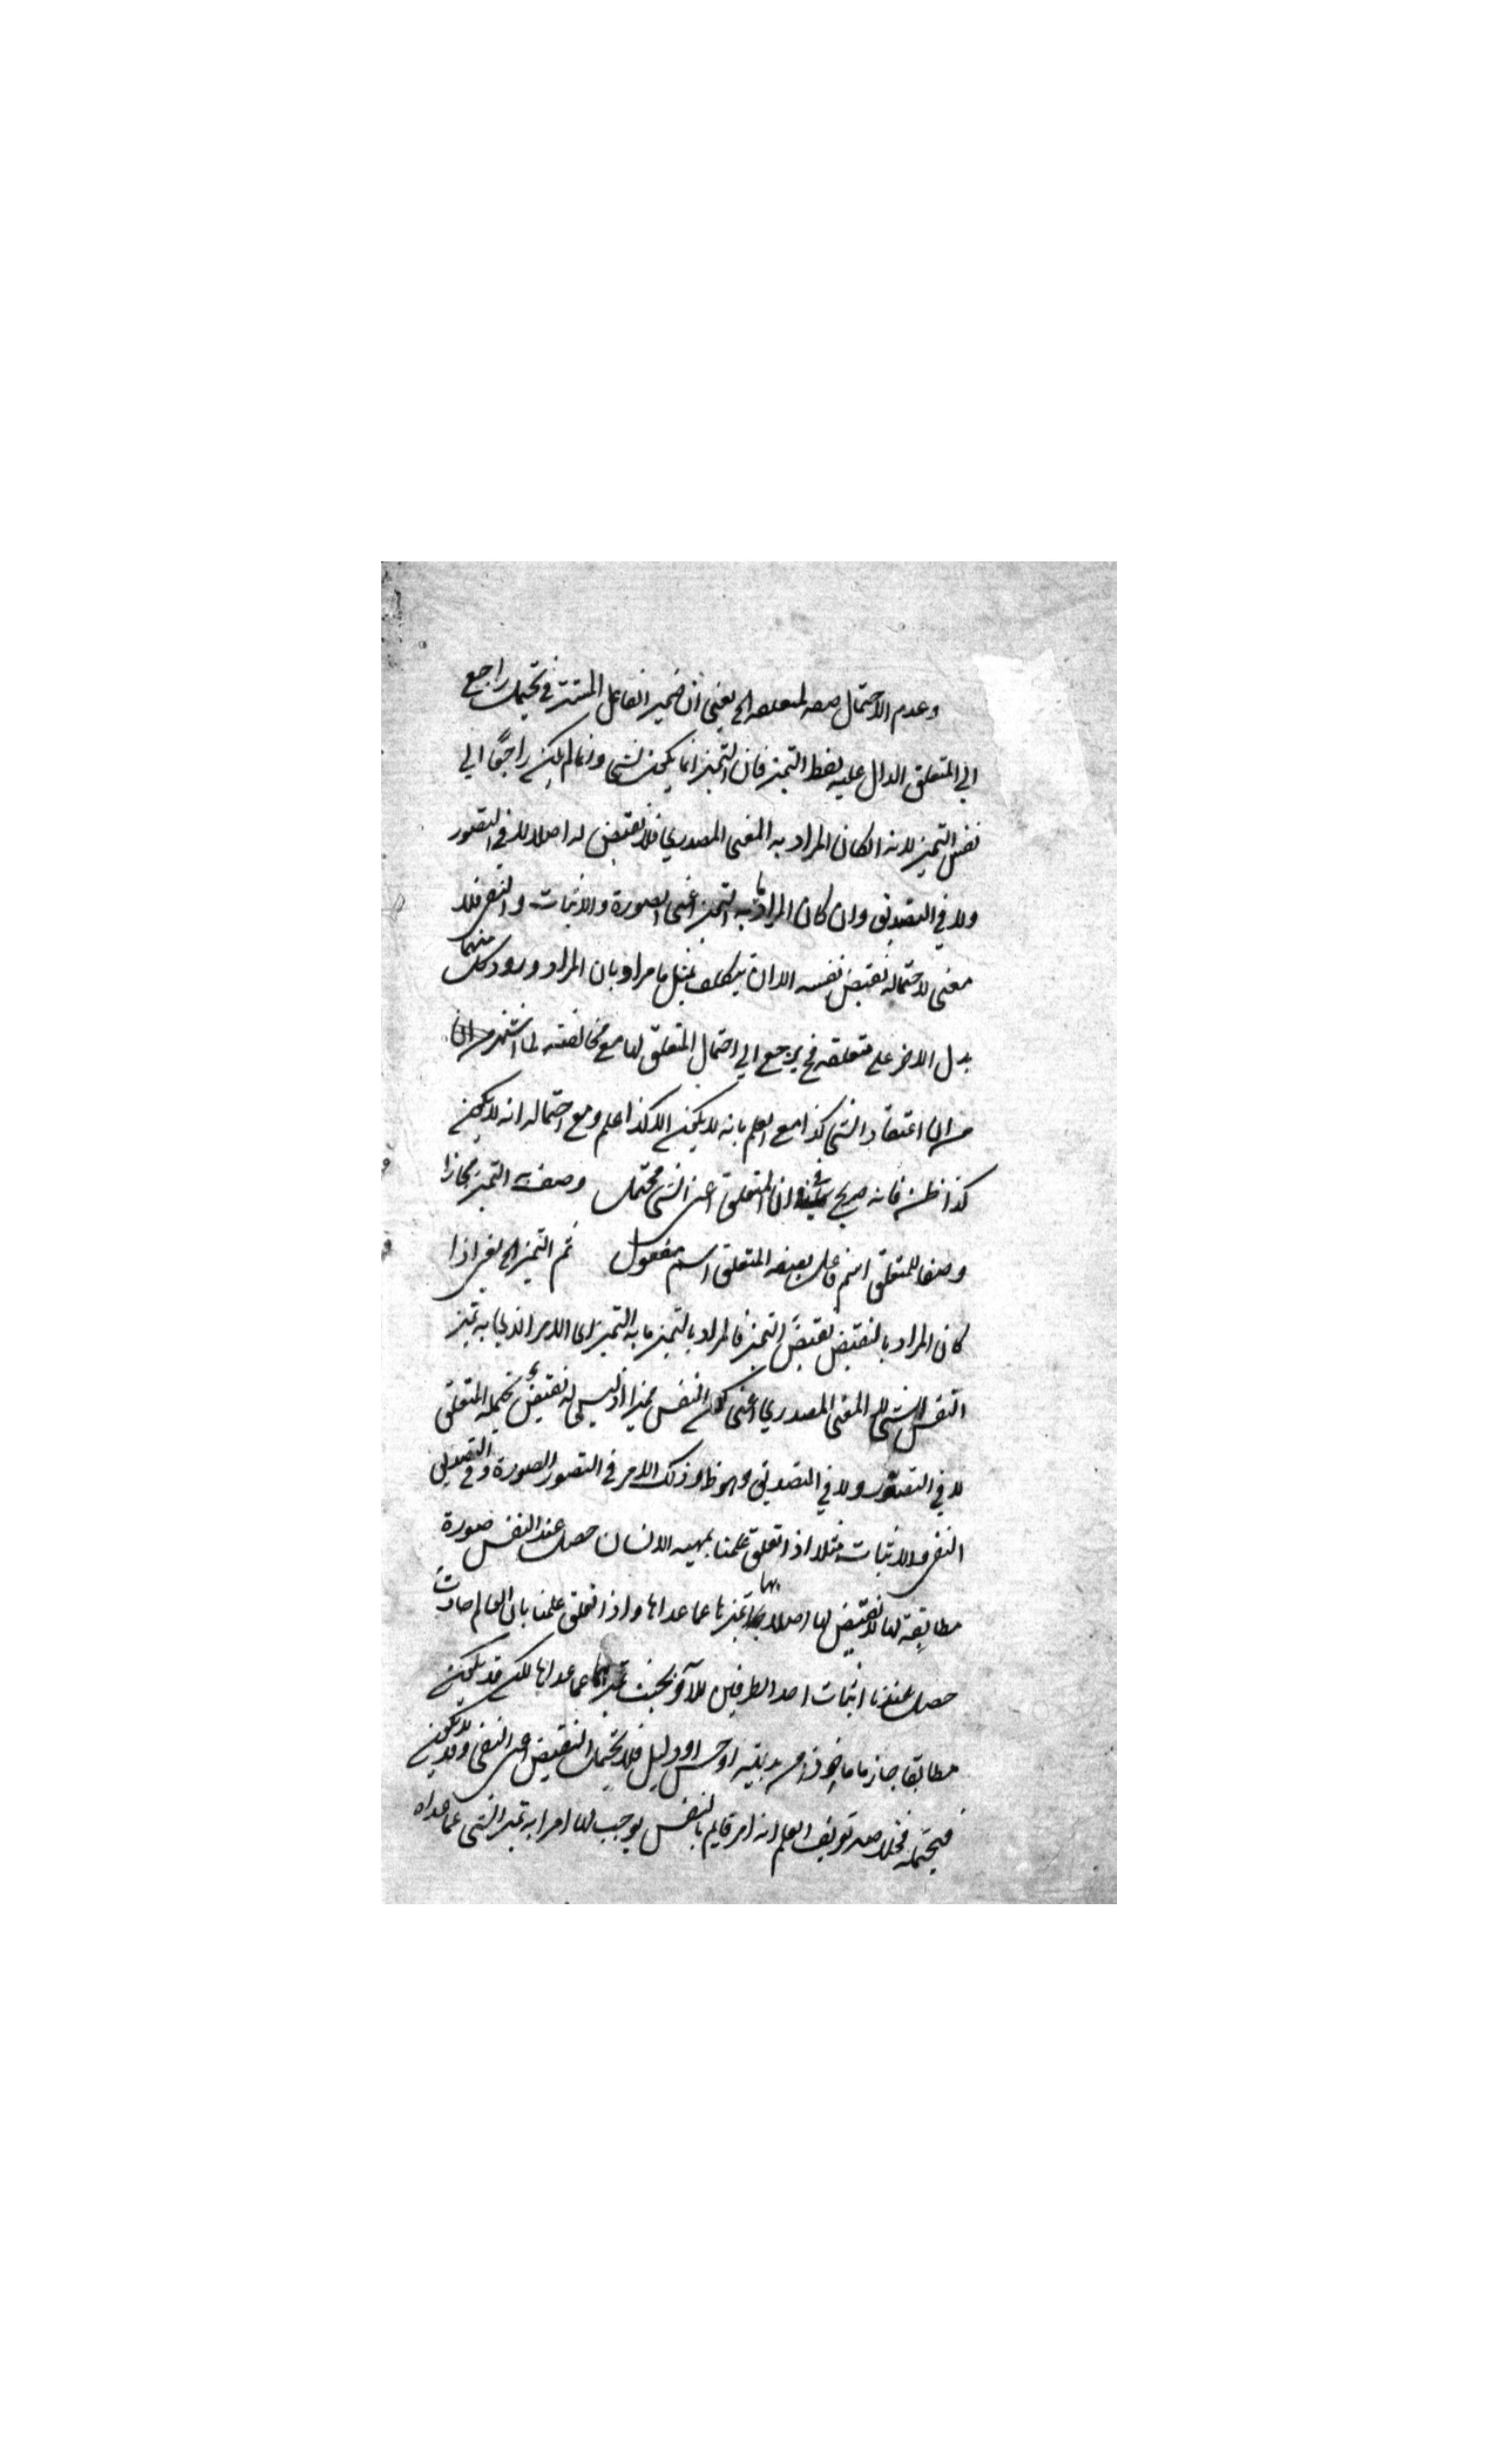 وعدم الاحتمال صفة لمتعلقه الخ يعني ان ضمير الفاعل المستتر في يحتمل راجع
الي المتعلق الدال عليه لفظ التميز فان التميز انما يكون لشي وانما لم يكن راجعًا الي
نفس التميز لانه ان كان المراد به المعنى المصدري فلا نقيض له اصلا لا في التصور
ولا في التصديق وان كان المراد ما به التميز اعنى الصورة والاثبات والنفي فلا
معنى لاحتماله نقيض نفسه الا ان يتكلف بمثل ما مر او بان المراد ورود كل منهما
بدل الاخر على متعلقه فح يرجع الي احتمال المتعلق لها مع مخالفته لما اشتهر
من ان اعتقاد الشي كذا مع العلم بانه لا يكون الا كذا علم ومع احتماله انه لا يكون
كذا ظن فانه صريح في ان المتعلق اعنى الشي محتمل وصف به التميز مجازا
وصفا للمتعلق اسم فاعل بصفه المتعلق اسم مفعول ثم التميز الخ يعني اذا
كان المراد بالنقيض نقيضَ التميز فالمراد بالتميز ما به التميز اى الامر الذي به تميز
النفس الشي لا المعنى المصدري اعنى كون النفس مميزا اذ ليس له نقيض يحتمله المتعلق
لا في التصور ولا في التصديق وهو ظ وذلك الامر في التصور الصورة وفي التصديق
النفي والاثبات مثلا اذا تعلق علمنا بمهيه الانسان حصل عند النفس صورة
مطابقة لها لا نقيض لها اصلا بها تميزها عما عداها واذا تعلق علمنا بان العالم حادث
حصل عندنا اثبات احد الطرفين للآخر بحيث تميزهما عما عداهما لكن قد يكون
مطابقا جازما ماخوذا من بديهة او حس او دليل فلا يحتمل النقيض اعنى النفي وقد لا يكون
فيحتمله فخلاصه تعريف العلم انه امر قايم بالنفس يوجب لها امرا به تميز الشي عما عداه